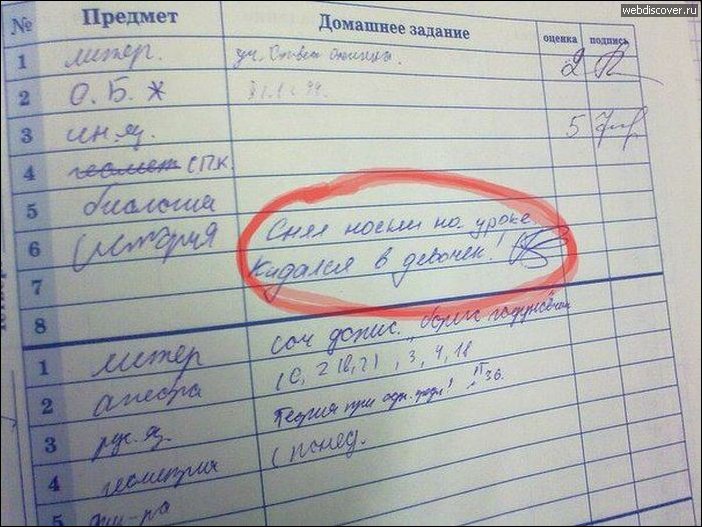 webdiscover.ru
№ Предмет Домашнее задание оценка подпись
1 литер. 2
2 О.Б.Ж
3 ин.яз. 5
4 геомет спк.
5 биология
6 история Снял носки на уроке.
7 Кидался в девочек!
8
1 литер соч допис. „Борис годунов"
2 алгебра 3, 4, 18
3 рус.яз. Теория при 36.
4 геометрия с понед.
5 физ-ра